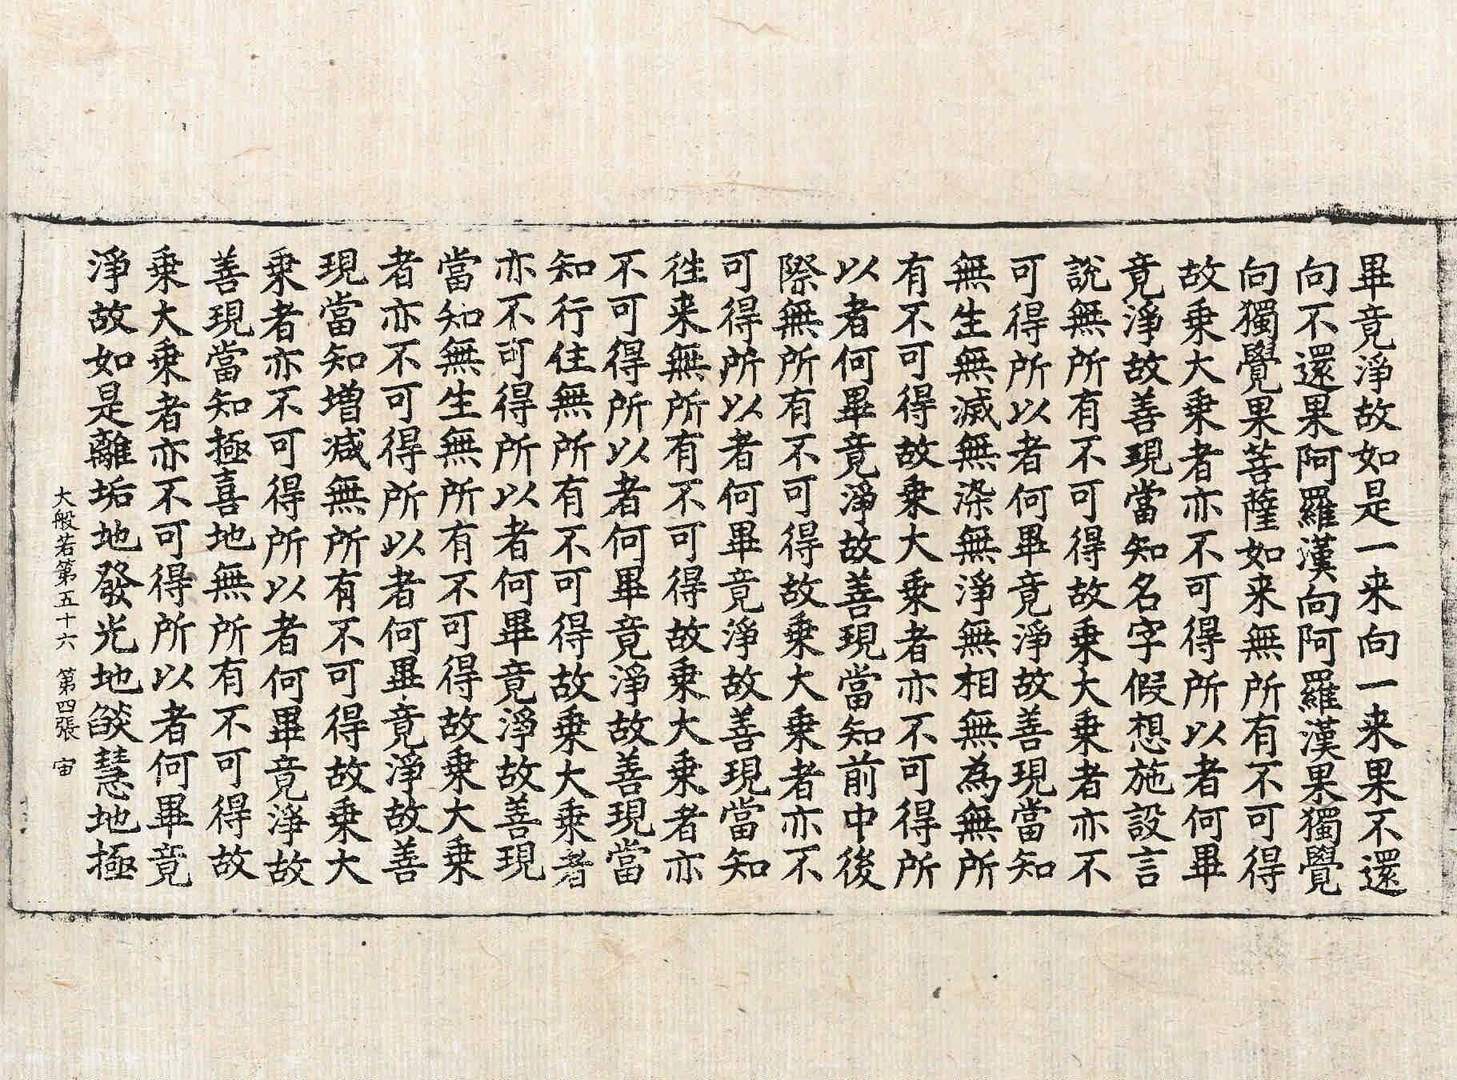 畢竟淨故如是一来向一来果不還
向不還果阿羅漢向阿羅漢果獨覺
向獨覺果菩薩如来無所有不可得
故乗大乗者亦不可得所以者何畢
竟淨故善現當知名字假想施設言
說無所有不可得故乗大乗者亦不
可得所以者何畢竟淨故善現當知
無生無滅無染無淨無相無為無所
有不可得故乗大乗者亦不可得所
以者何畢竟淨故善現當知前中後
際無所有不可得故乗大乗者亦不
可得所以者何畢竟淨故善現當知
徃来無所有不可得故乗大乗者亦
不可得所以者何畢竟淨故善現當
知行住無所有不可得故乗大乗者
亦不可得所以者何畢竟淨故善現
當知無生無所有不可得故乗大乗
者亦不可得所以者何畢竟淨故善
現當知增减無所有不可得故乗大
乗者亦不可得所以者何畢竟淨故
善現當知極喜地無所有不可得故
乗大乗者亦不可得所以者何畢竟
淨故如是離垢地發光地燄慧地極
大般若第五十六 第四張 宙